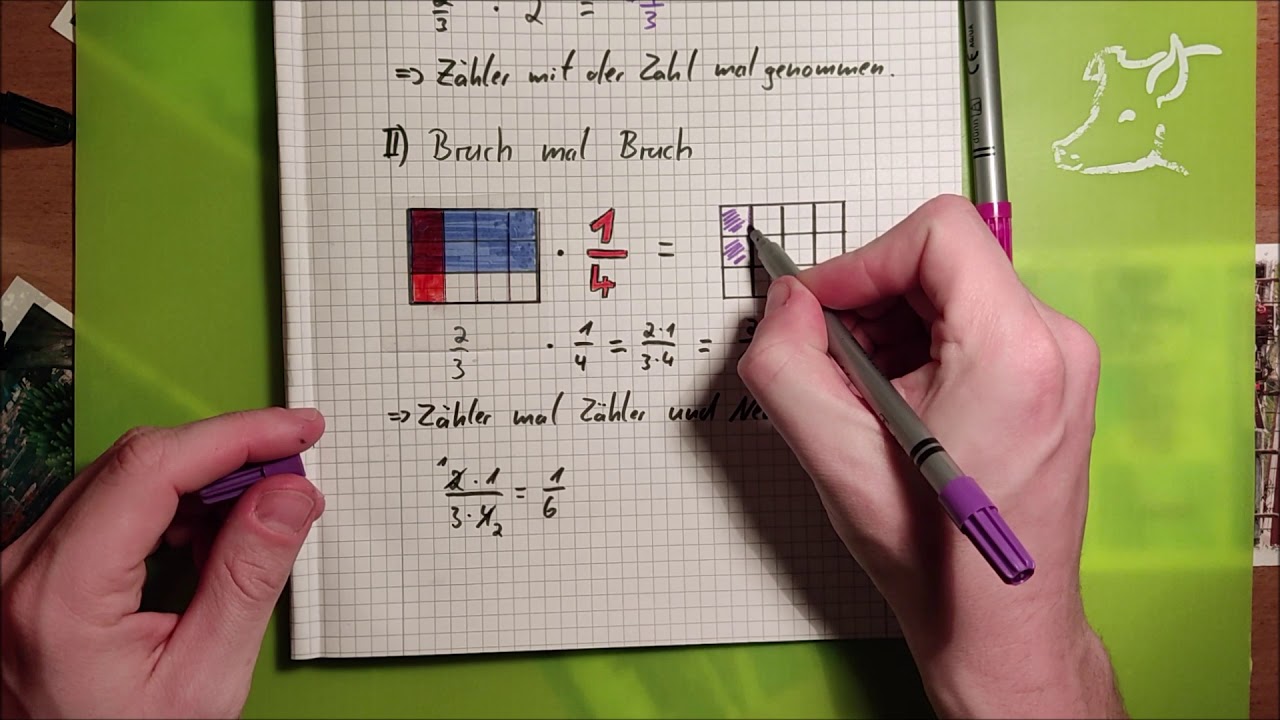 2/3 · 2 = 4/3
=> Zähler mit der Zahl mal genommen.
II) Bruch mal Bruch
· 1/4 =
2/3 · 1/4 = 2·1/3·4 =
=> Zähler mal Zähler und
1 2 · 1/3 · 4 2 = 1/6